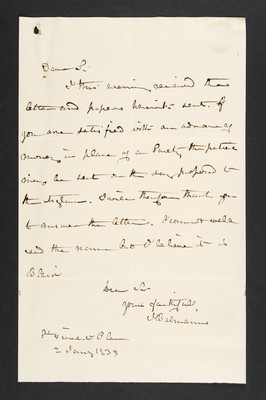 Dear Sir
I this evening received the
letter and papers herewith sent. If
you are satisfied with an advance of
money in place of a the
may be sent on the day proposed to
the Asylum. I will therefore thank you
to answer the letter. I cannot well
read the name but I believe it is
Blair
Dear Sir
yours faithfully
2 Jany 1833